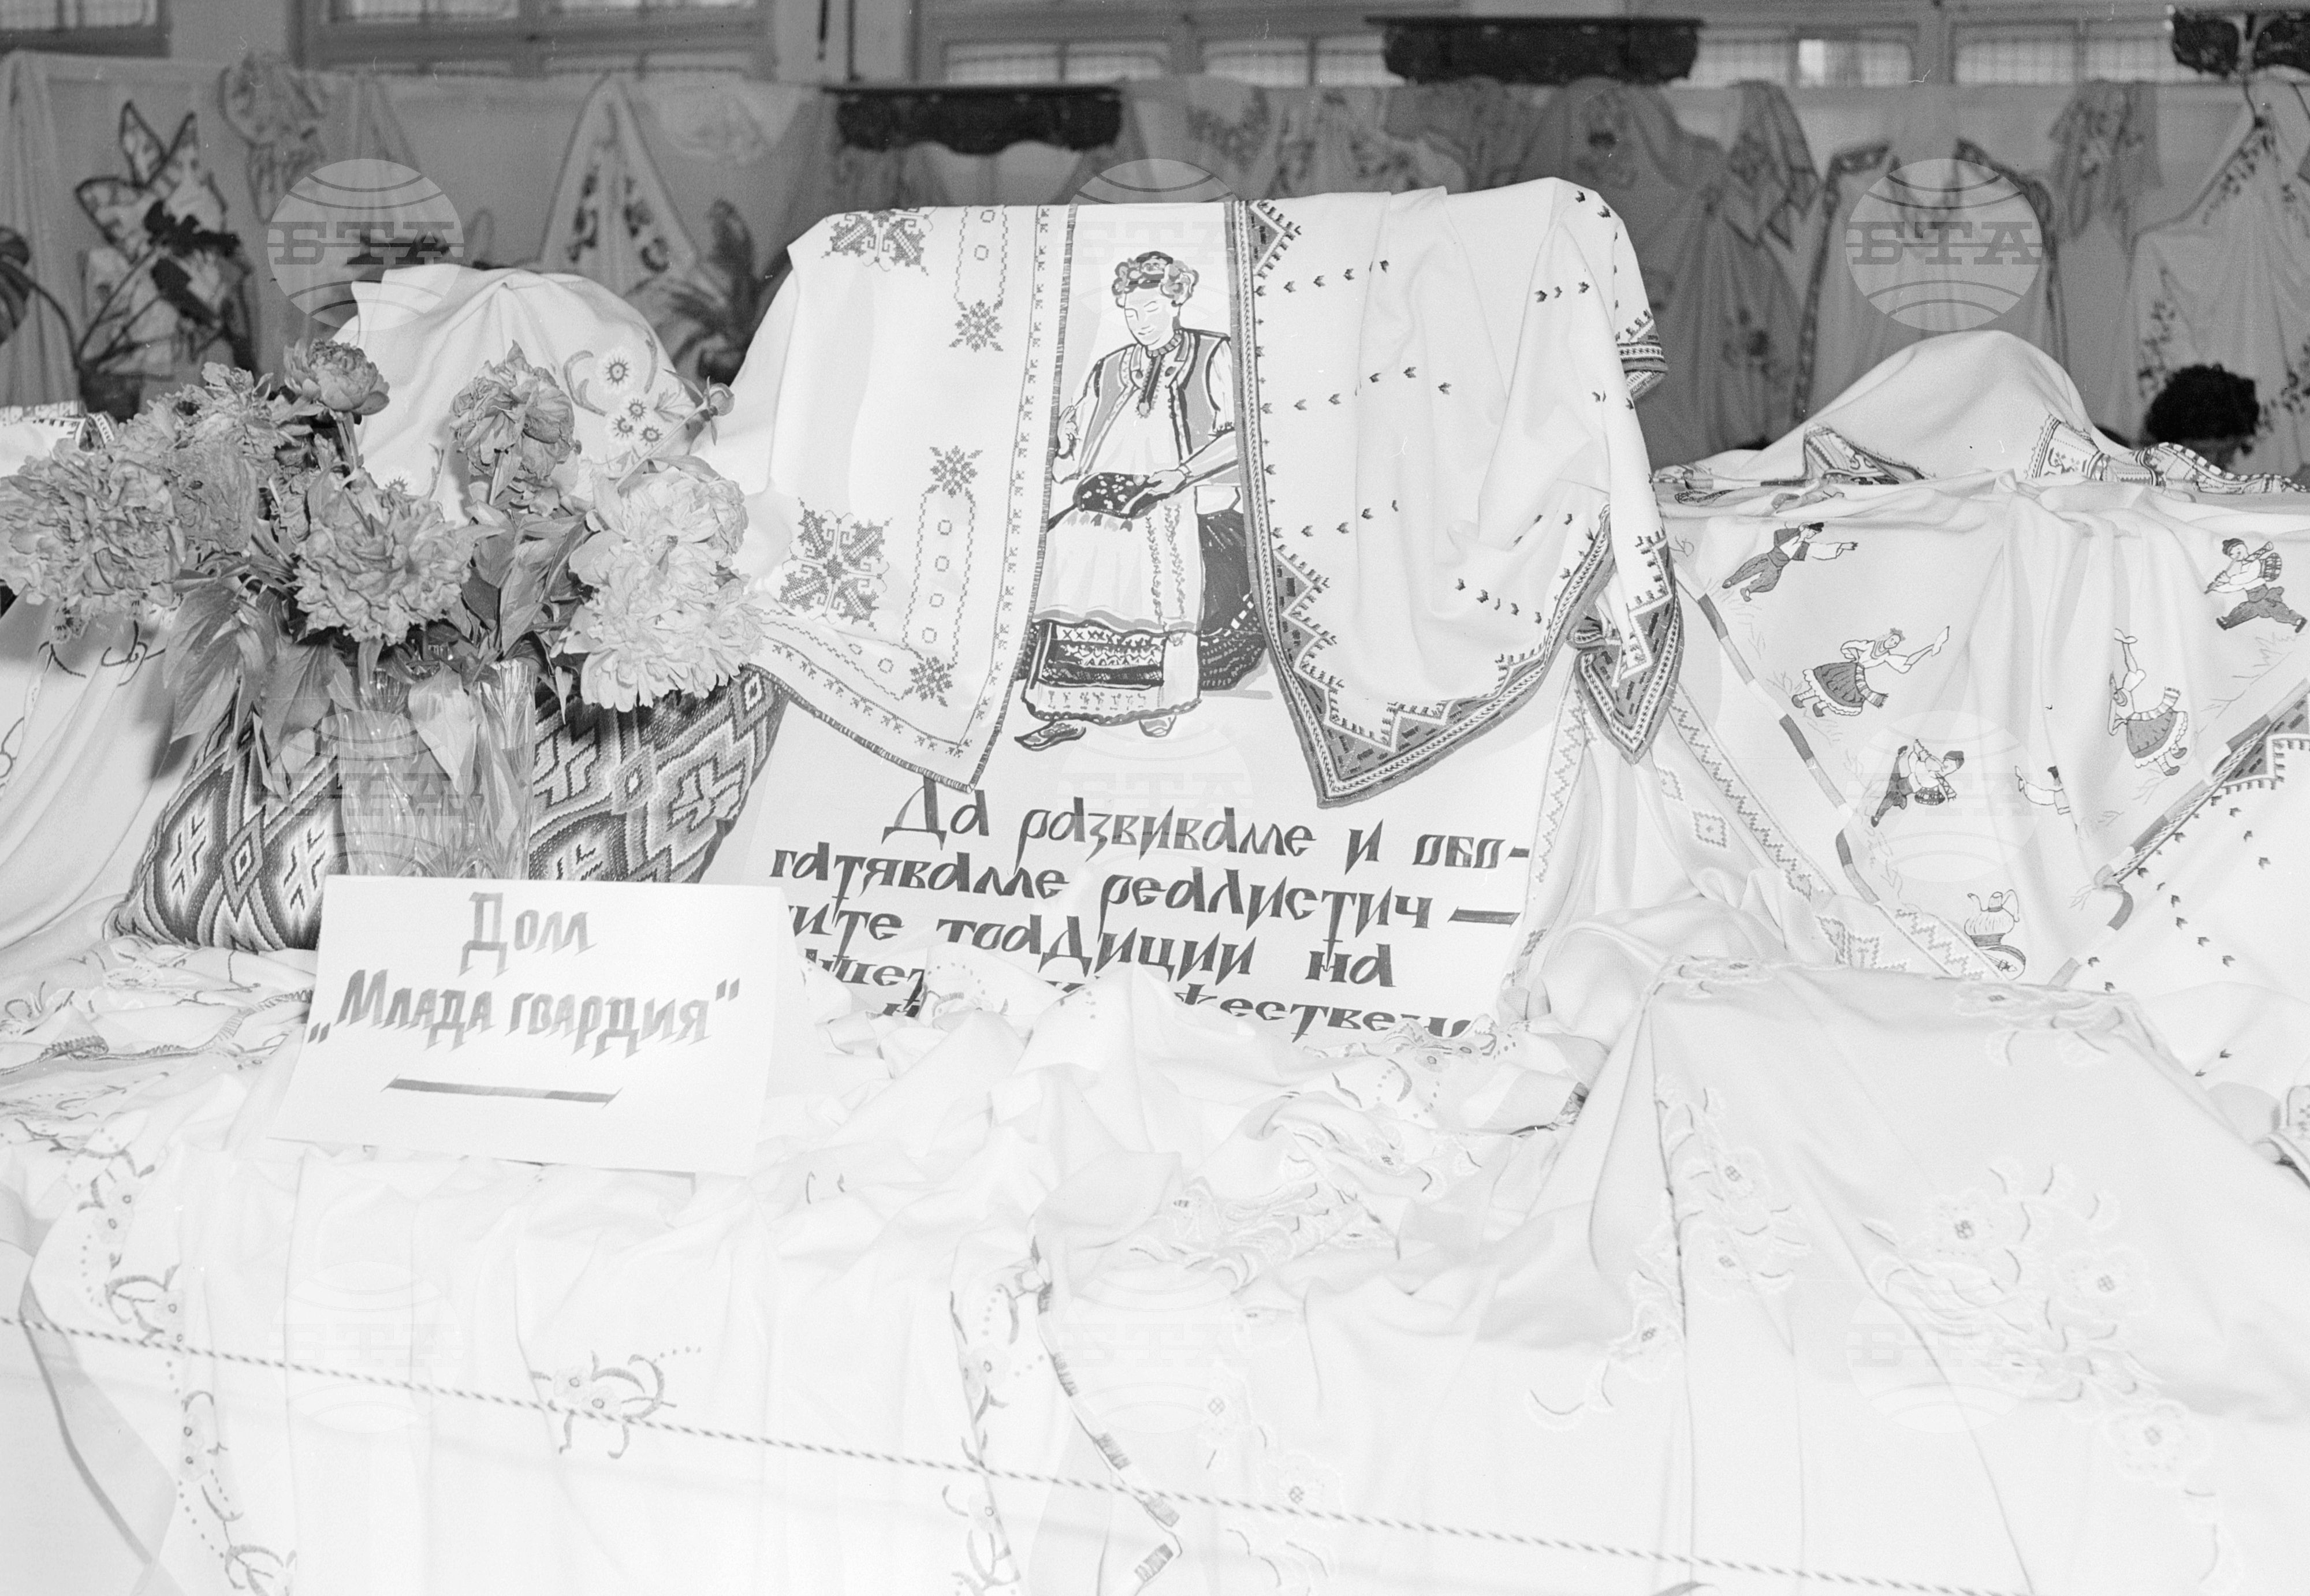 БТА
БТА
БТА
Да развиваме и обо-
гатяваме реалистич-
ните традиции на
Дом
„Млада гвардия“